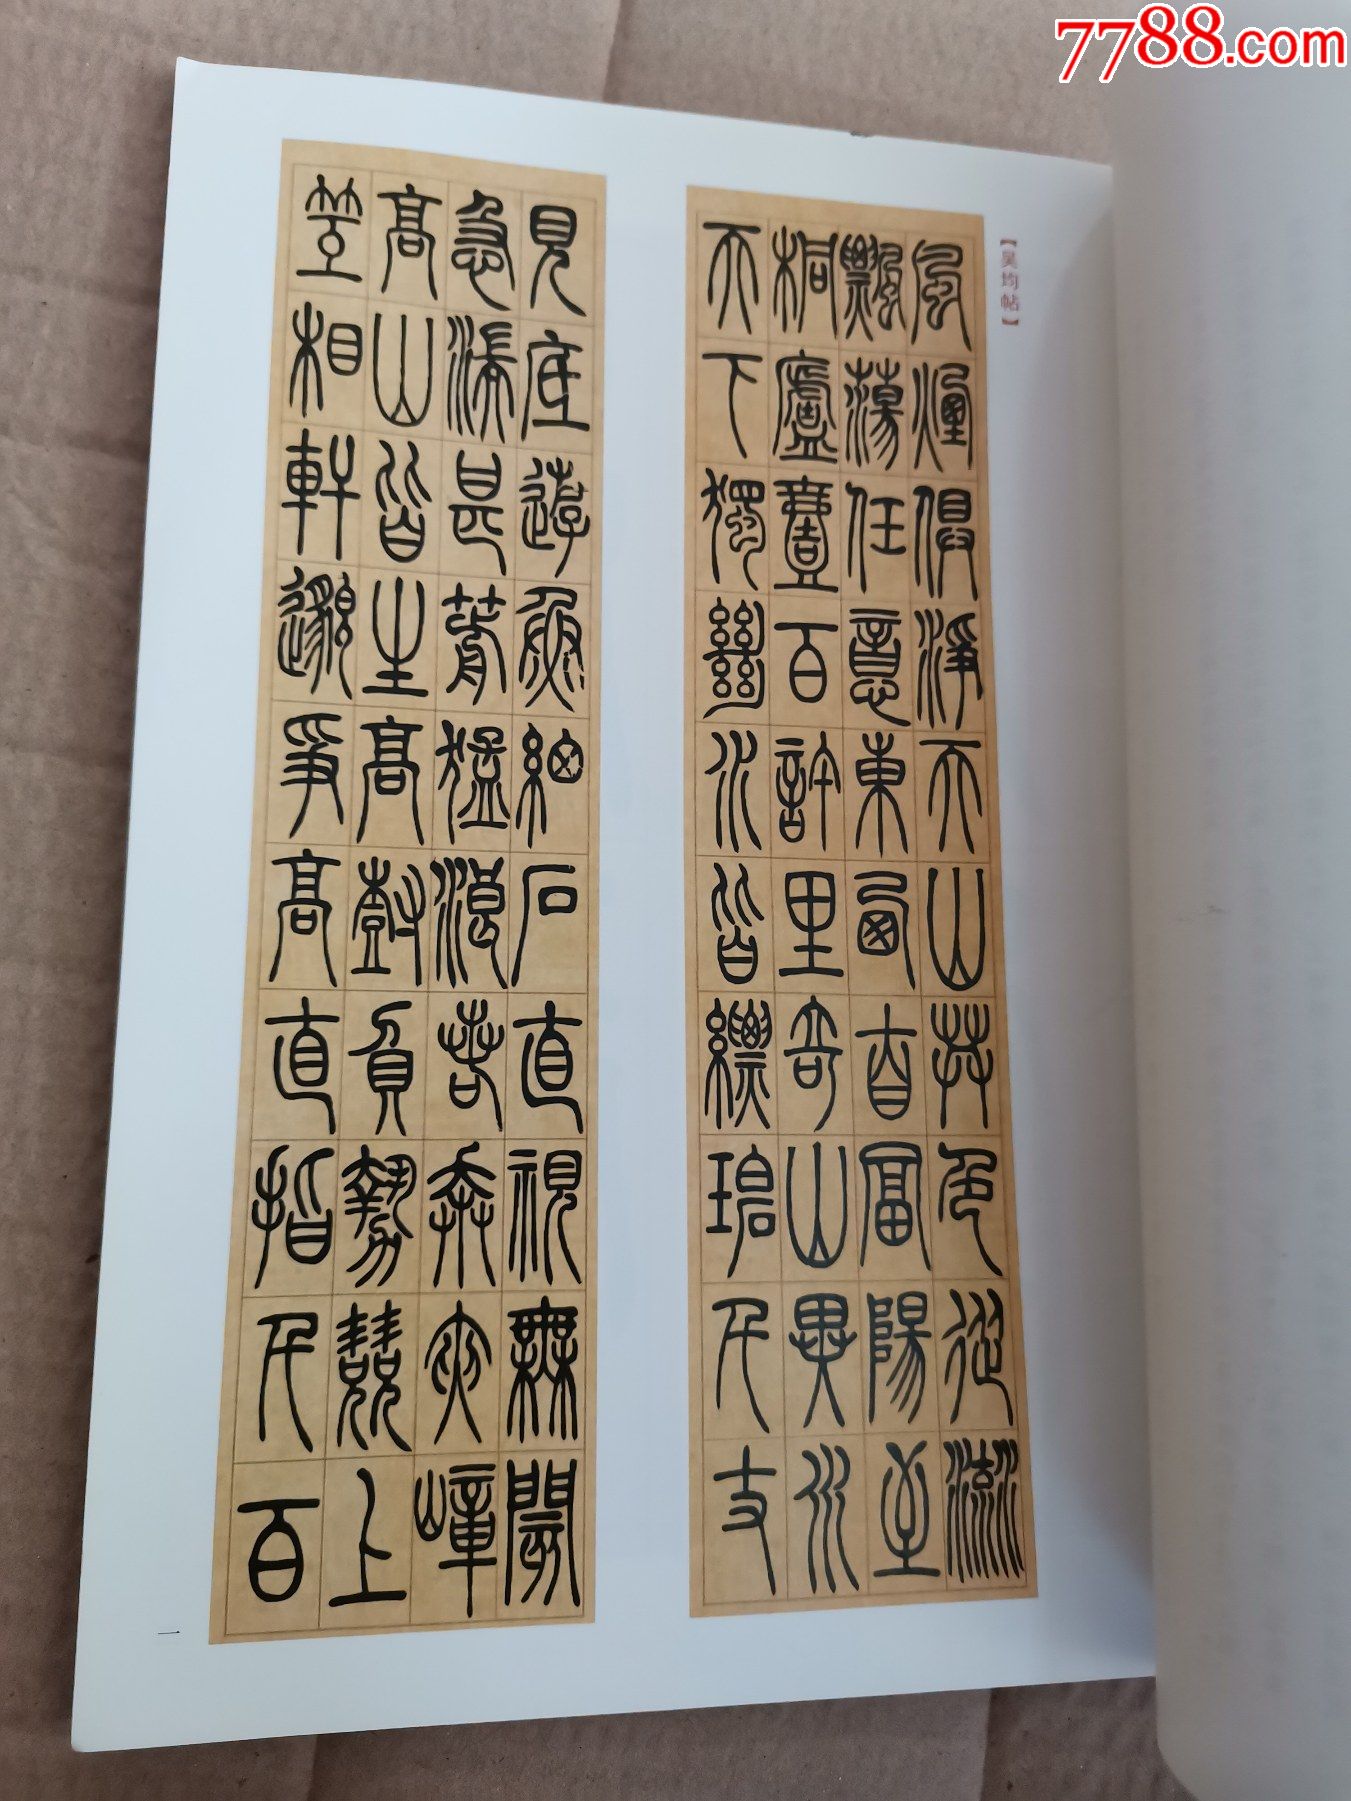 【吴均帖】
風煙俱淨天山共色從流
飄蕩任意東西自富陽至
桐廬壹百許里奇山異水
天下獨絕水皆縹碧千丈
見底遊魚細石直視無閡
急湍甚箭猛浪若奔夾嶂
高山皆生高樹負勢競上
互相軒邈爭高直指千百
一
7788.com